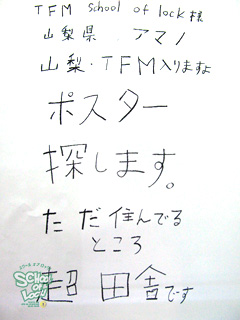 TFM School of lock 様
山梨県 アマノ
山梨・TFM入りますよ
ポスター
探します。
ただ住んでる
ところ
超 田舎です
SCHOOL
OF
LOCK!